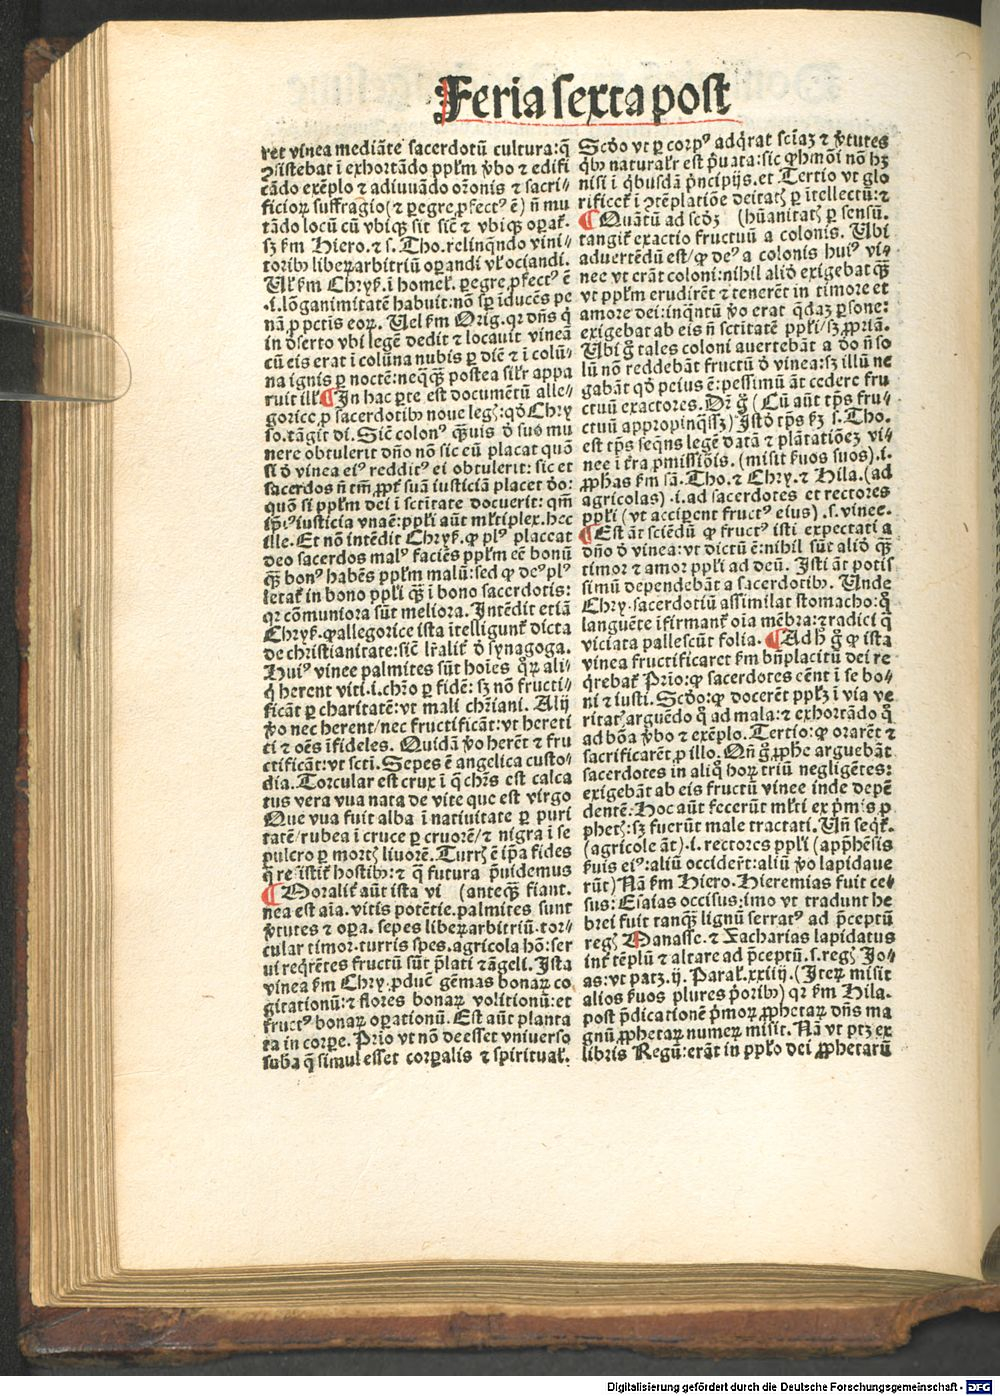 Feria sexta post
ret vinea mediãte sacerdotũ cultura: q̃
ꝯsistebat ĩ exhortãdo ppl̃m v̾bo ⁊ edifi
cãdo exẽplo ⁊ adiuuãdo or̃onis ⁊ sacri⸗
ficioꝝ suffragio (⁊ ꝑegre ꝓfectꝰ ẽ) ñ mu
tãdo locũ cũ vbiqꝫ sit sic̃ ⁊ vbiqꝫ opat̃.
sꝫ fm Hiero. ⁊ s. Tho. relinqndo vini⸗
toribꝰ liberꝝ arbitriũ oꝑandi vl̃ ociandi.
Ul̃ fm Chryſ. ĩ homel̃. ꝑegre ꝓfectꝰ ẽ
.i. lõganimitatẽ habuit: nõ sꝑ ĩducẽs pe
nã ꝓ pctis eoꝝ. Uel fm Orig. qꝛ dñs q̃
in d̾serto vbi legẽ dedit ⁊ locauit vineã
cũ eis erat ĩ colũna nubis ꝑ diẽ ⁊ ĩ colũ⸗
na ignis ꝑ noctẽ: neqꝫ postea sil̃r appa
ruit ill̃ ¶ In hac ꝑte est documẽtũ alle⸗
gorice ꝓ sacerdotibꝰ noue legꝭ: qd̾ Chry
so. tãgit di. Sic̃ colonꝰ q̃uis d̾ suo mu
nere obtulerit dño nõ sic eũ placat quõ
si d̾ vinea eiꝰ redditꝰ ei obtulerit: sic et
sacerdos ñ tm̃ ꝓpt̾ suã iusticiã placet d̾o:
quõ si ppl̃m dei ĩ sctitate docuerit: qm̃
ip̃iꝰ iusticia vna ẽ: ppl̃i aũt ml̃tiplex. hec
ille. Et nõ intẽdit Chryſ. ꝙ plꝰ placeat
deo sacerdos malꝰ faciẽs ppl̃m eẽ bonũ
q̃ꝫ bonꝰ habẽs ppl̃m malũ: sed ꝙ deꝰ plꝰ
letat̃ in bono ppl̃i q̃ꝫ ĩ bono sacerdotis:
qꝛ cõmuniora sũt meliora. Intẽdit etiã
Chryſ. ꝙ allegorice ista ĩtelligunt̃ dicta
de christianitate: sicut̃ lr̃alit̃ d̾ synagoga.
Huiꝰ vinee palmites sũt hoĩes qꝛ ali⸗
q̃ herent viti .i. chr̃o ꝑ fidẽ: sꝫ nõ fructi⸗
ficãt ꝑ charitatẽ: vt mali chr̃iani. Alij
v̾o nec herent / nec fructificãt: vt hereti
ci ⁊ oẽs ĩfideles. Quidã v̾o herẽt ⁊ fru
ctificãt: vt scti. Sepes ẽ angelica custo⸗
dia. Torcular est crux ĩ q̃ chr̃s est calca
tus vera vua nata de vite que est virgo
Que vua fuit alba ĩ natiuitate ꝑ puri
tatẽ / rubea ĩ cruce ꝑ cruorẽ / ⁊ nigra ĩ se
pulcro ꝑ mortꝭ liuorẽ. Turrꝭ ẽ ip̃a fides
q̃ resistit̃ hostibꝰ: ⁊ q̃ futura p̃uidemus
¶ Moralit̃ aũt ista vi (anteq̃ꝫ fiant.
nea est aĩa. vitis potẽtie. palmites sunt
v̾tutes ⁊ oꝑa. sepes liberꝝ arbitriũ. tor⸗
cular timor. turris spes. agricola hõ: ser
ui reqrẽtes fructũ sũt p̃lati ⁊ ãgeli. Ista
vinea fm Chry. ꝓduc̃ gẽmas bonaꝝ co
gitationũ: ⁊ flores bonaꝝ volitionũ: et
fructꝰ bonaꝝ oꝑationũ. Est aũt planta
ta in corꝑe. Prĩo vt nõ deesset vniuerso
suba q̃ simul esset corꝑalis ⁊ spiritual̃.
Scd̾o vt ꝑ corpꝰ adqrat sciaꝫ ⁊ v̾tutes
qbꝰ naturalr̃ est p̃uata: sic ꝙ hmõi nõ hꝫ
nisi ĩ qbusdã p̃ncipijs. et Tertio vt glo
rificet̃ ĩ ꝯtẽplatiõe deitatꝭ ꝑ ĩtellectũ: ⁊
¶ Quãtũ ad scd̾ꝫ (hũanitatꝭ ꝑ sensũ.
tangit̃ exactio fructuũ a colonis. Ubi
aduertẽdũ est / ꝙ deꝰ a colonis huiꝰ vi⸗
nec vt erãt coloni: nihil aliđ exigebat q̃ꝫ
vt ppl̃m erudirẽt ⁊ tenerẽt in timore et
amore dei: inq̃ntũ v̾o erat qdaꝫ ꝑsone:
exigebat ab eis ñ sctitatẽ ppl̃i / sꝫ ꝓpriã.
Ubi g̾ tales coloni auertebãt a d̾o ñ so
lũ nõ reddebãt fructũ d̾ vinea: sꝫ illũ ne
gabãt qd̾ peius ẽ: pessimũ ãt cedere fru
ctuũ exactores. Dr̃ g̾ (Cũ aũt tp̃s fru⸗
ctuũ appropinqssꝫ) Istđ tp̃s fꝫ s. Tho.
est tp̃s seqñs legẽ datã ⁊ plãtatiõeꝫ vi⸗
nee ĩ fra ꝑmissiõis. (misit fuos suos) .i.
ꝓphas fm sã. Tho. ⁊ Chry. ⁊ Hila. (ad
agricolas) .i. ad sacerdotes et rectores
ppl̃i (vt acciperent fructꝰ eius) .s. vinee.
¶ Est ãt sciẽdũ ꝙ fructꝰ isti expectati a
dño d̾ vinea: vt dictũ ẽ: nihil sũt aliđ q̃ꝫ
timor ⁊ amor ppl̃i ad deũ. Isti ãt potis
simũ dependebãt a sacerdotibꝰ. Unde
Chry. sacerdotiũ assimilat stomacho: q̾
languẽte ĩfirmant̃ oĩa mẽbra: ⁊ radici q̃
viciata pallescũt folia. ¶ Ad h̾ g̾ ꝙ ista
vinea fructificaret fm bñplacitũ dei re
q̃rebat̃ Prĩo: ꝙ sacerdotes eẽnt ĩ se bo⸗
ni ⁊ iusti. Scd̾o: ꝙ docerẽt ppl̃ꝫ ĩ via ve
ritatꝭ arguẽdo q̃ ad mala: ⁊ exhortãdo q̃
ad bõa v̾bo ⁊ exẽplo. Tertio: ꝙ orarẽt ⁊
sacrificarẽt ꝓ illo. Qñ g̾ ꝓphe arguebãt
sacerdotes in aliq̾ hoꝝ triũ negligẽtes:
exigebãt ab eis fructũ vinee inde depẽ
dentẽ. Hoc aũt fecerũt ml̃ti ex p̃mis ꝓ
phetꝭ: sꝫ fuerũt male tractati. Uñ seqt̃.
(agricole ãt) .i. rectores ppl̃i (app̃hẽsis
fuis eiꝰ: aliũ occider̃t: aliũ v̾o lapidaue
rũt) Nã fm Hiero. Hieremias fuit ce⸗
sus: Esaias occisus: imo vt tradunt he
brei fuit tanqꝫ lignũ serratꝰ ad p̃ceptũ
regꝭ Manasse. ⁊ Zacharias lapidatus
int̃ tẽplũ ⁊ altare ad p̃ceptũ .s. regꝭ Jo⸗
as: vt patꝫ .ij. Paral̃. xxiiij. (Iteꝝ misit
alios fuos plures p̾oribꝰ) qꝛ fm Hila.
post p̃dicationẽ p̾moꝝ ꝓphetaꝝ dñs ma
gnũ ꝓphetaꝝ numeꝝ misit. Nã vt ptꝫ ex
libris Regũ: erãt in ppl̃o dei ꝓphetarũ
Digitalisierung gefördert durch die Deutsche Forschungsgemeinschaft - DFG